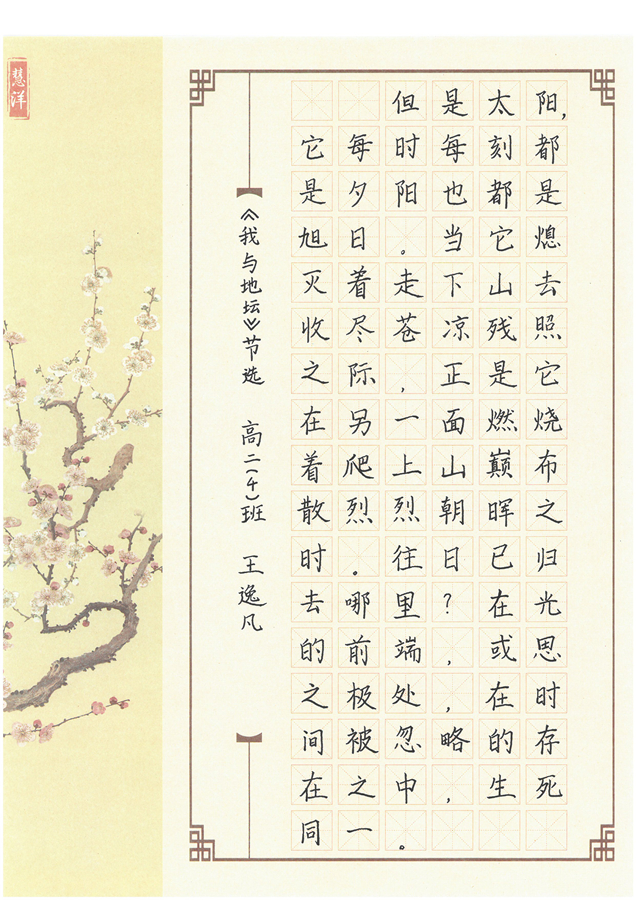 但是太阳,
它每时每刻都
是夕阳也都是
旭日。当它熄
灭着走下山去
收尽苍凉残照
之际,正是它
在另一面燃烧
着爬上山巅布
散烈烈朝晖之
时。往日已归
去哪里?在光
的前端,或思
之极处,在时
间被忽略的存
在之中,生死
同一。
《我与地坛》节选 高二(4)班 王逸凡
慧洋